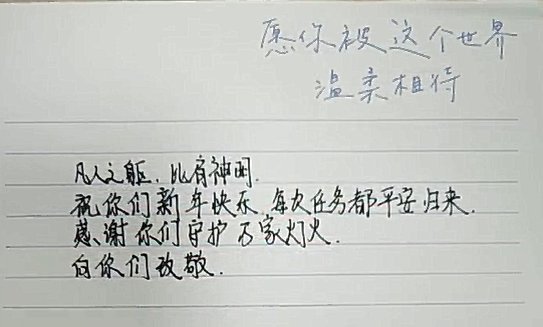 愿你被这个世界
温柔相待
凡人之躯，比肩神明.
祝你们新年快乐，每次任务都平安归来.
感谢你们守护万家灯火.
向你们致敬.